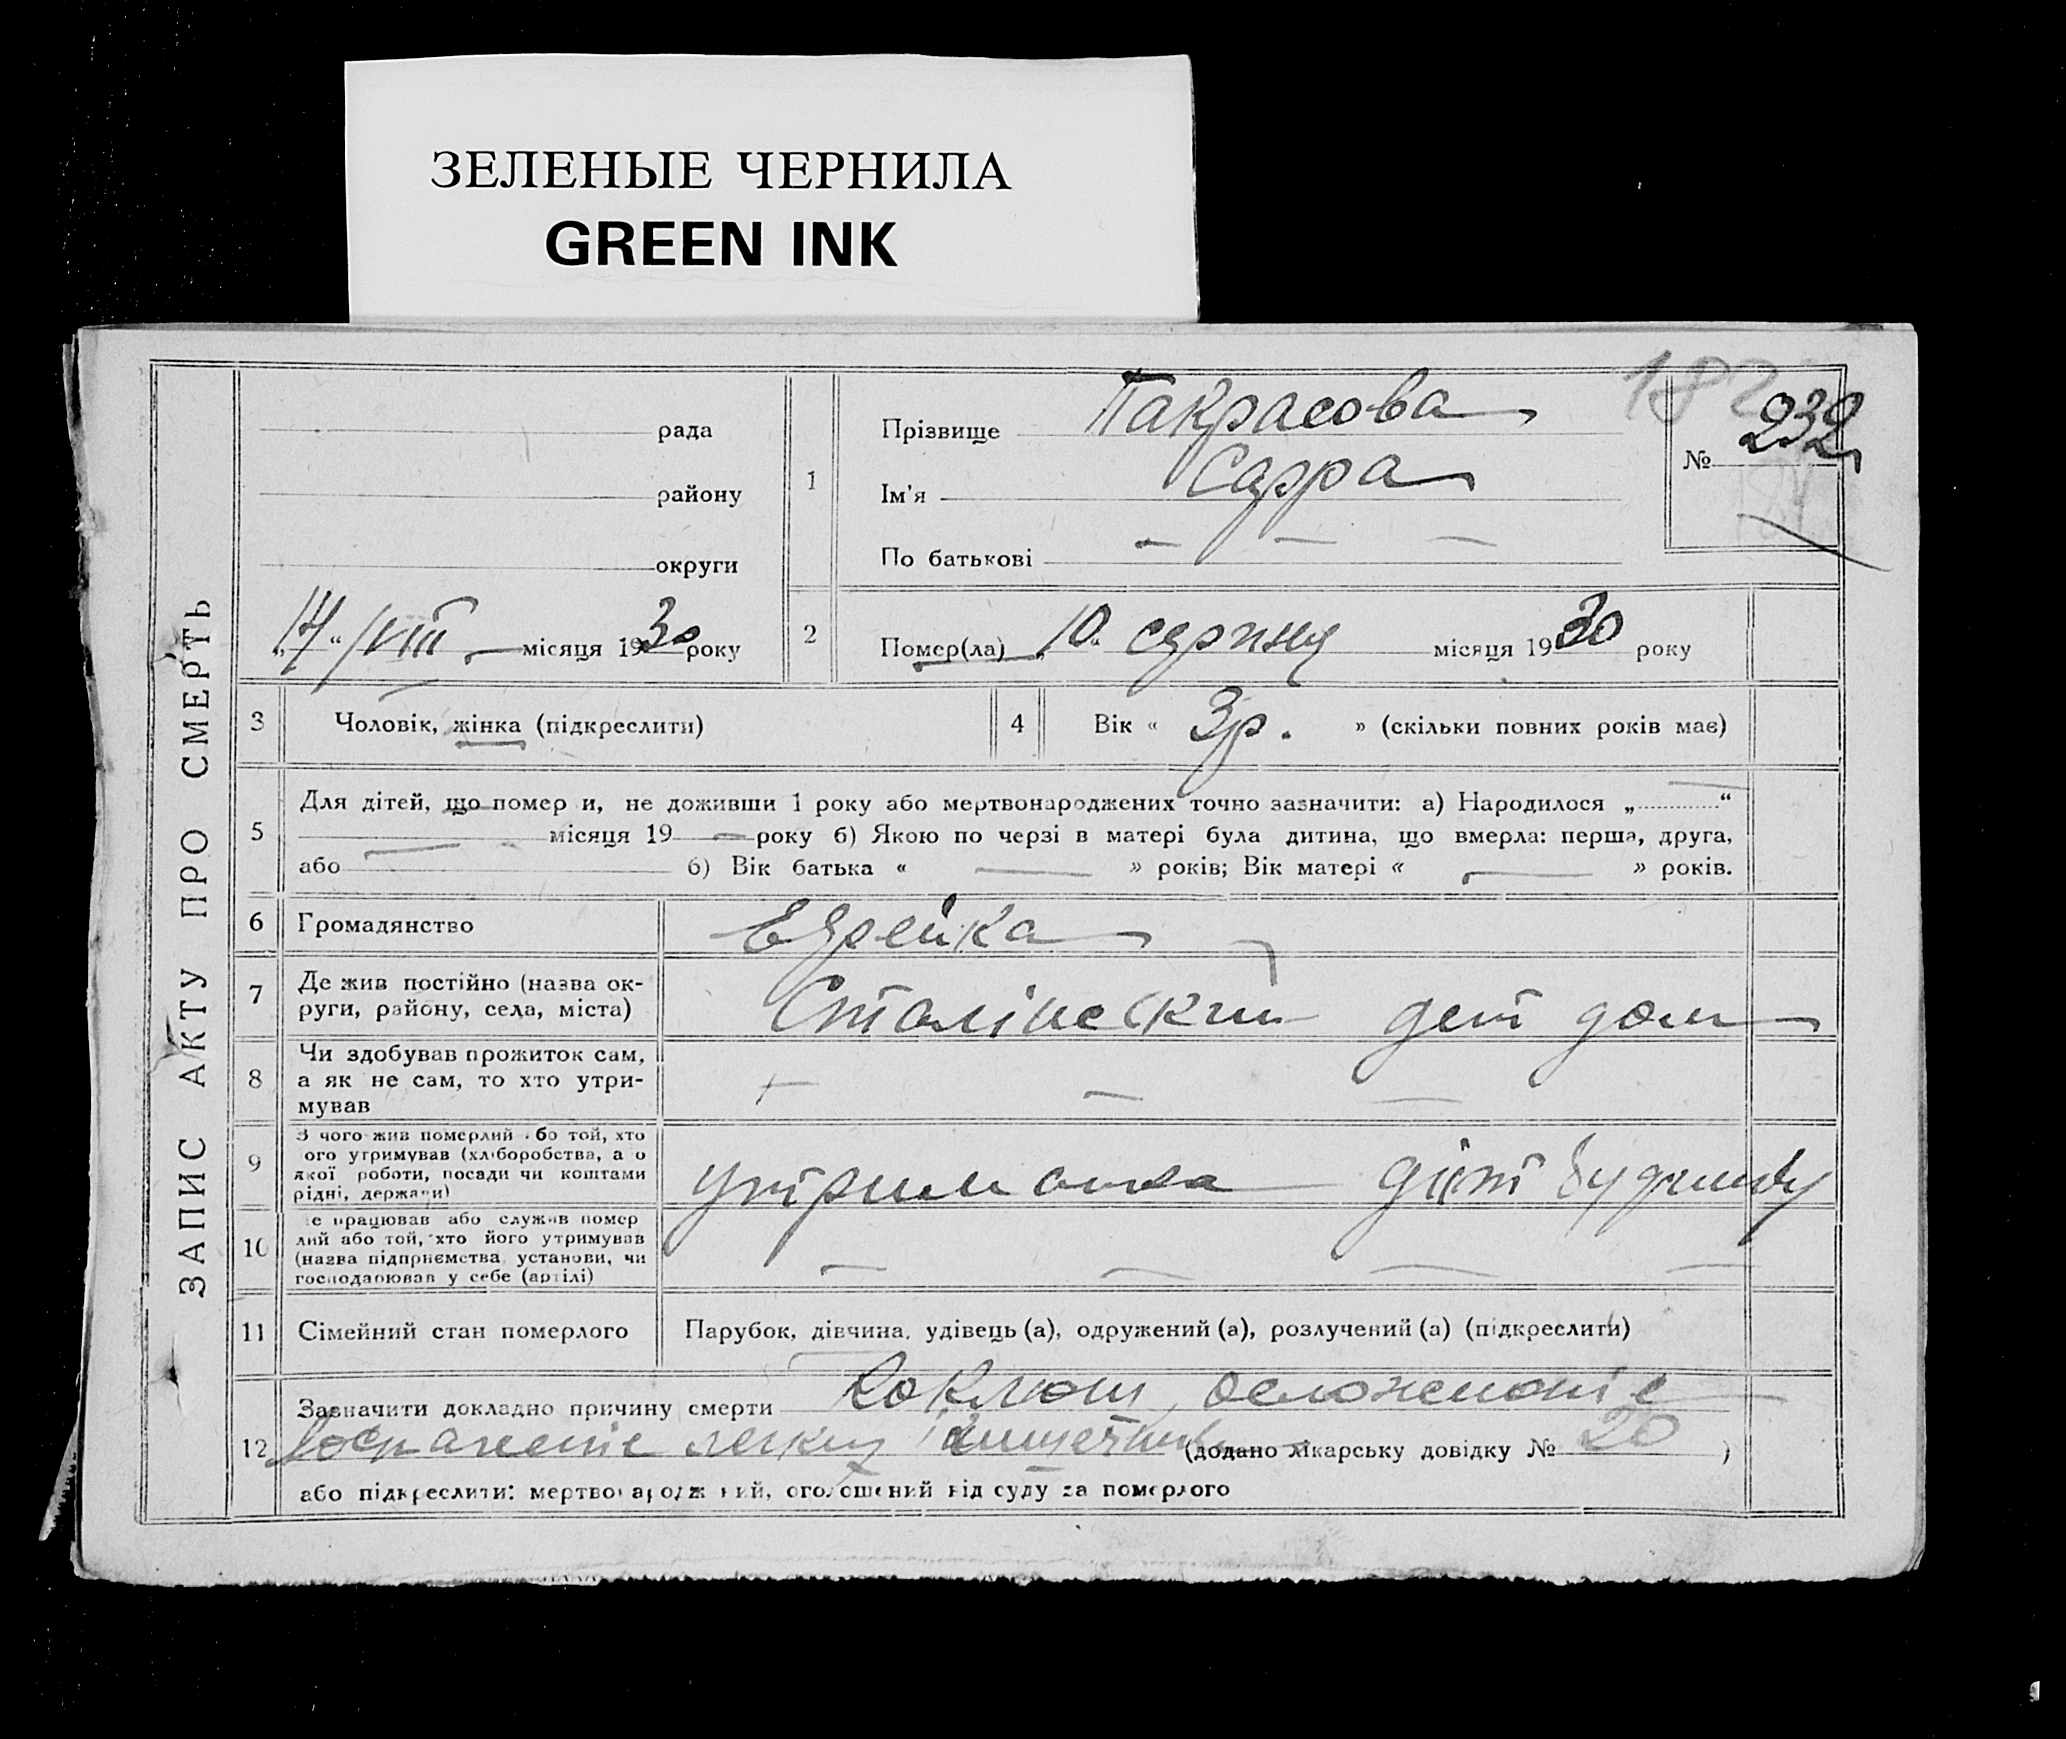 ЗЕЛЕНЫЕ ЧЕРНИЛА
GREEN INK
ЗАПИС АКТУ ПРО СМЕРТЬ
рада
району
округи
14 " VIII місяця 1930 року
182
№ 232
1
Прізвище Пакрасова
Ім'я Сарра
По батькові — — —
2
Помер(ла) „10“ серпня місяця 1930 року
3
Чоловік, жінка (підкреслити)
4
Вік « 3 р. » (скільки повних років має)
5
Для дітей, що помер и, не доживши 1 року або мертвонароджених точно зазначити: а) Народилося „ — “
— місяця 19 — року б) Якою по черзі в матері була дитина, що вмерла: перша, друга,
або — б) Вік батька « — » років; Вік матері « — » років.
6
Громадянство
Еврейка
7
Де жив постійно (назва ок-
руги, району, села, міста)
Сталінский дет дом
8
Чи здобував прожиток сам,
а як не сам, то хто утри-
мував
— — —
9
З чого жив померлий або той, хто
ого утримував (хліборобства, а о
якої роботи, посади чи коштами
рідні, держави)
утриманка дит будинку
10
е працював або служив помер
лий або той, хто його утримував
(назва підприємства, установи, чи
господарював у себе (артілі)
— — — —
11
Сімейний стан померлого
Парубок, дівчина, удівець (а), одружений (а), розлучений (а) (підкреслити)
12
Зазначити докладно причину смерти Коклюш,
легких (додано лікарську довідку № 20 )
або підкреслити: мертвонароджений, оголошений від суду за померлого